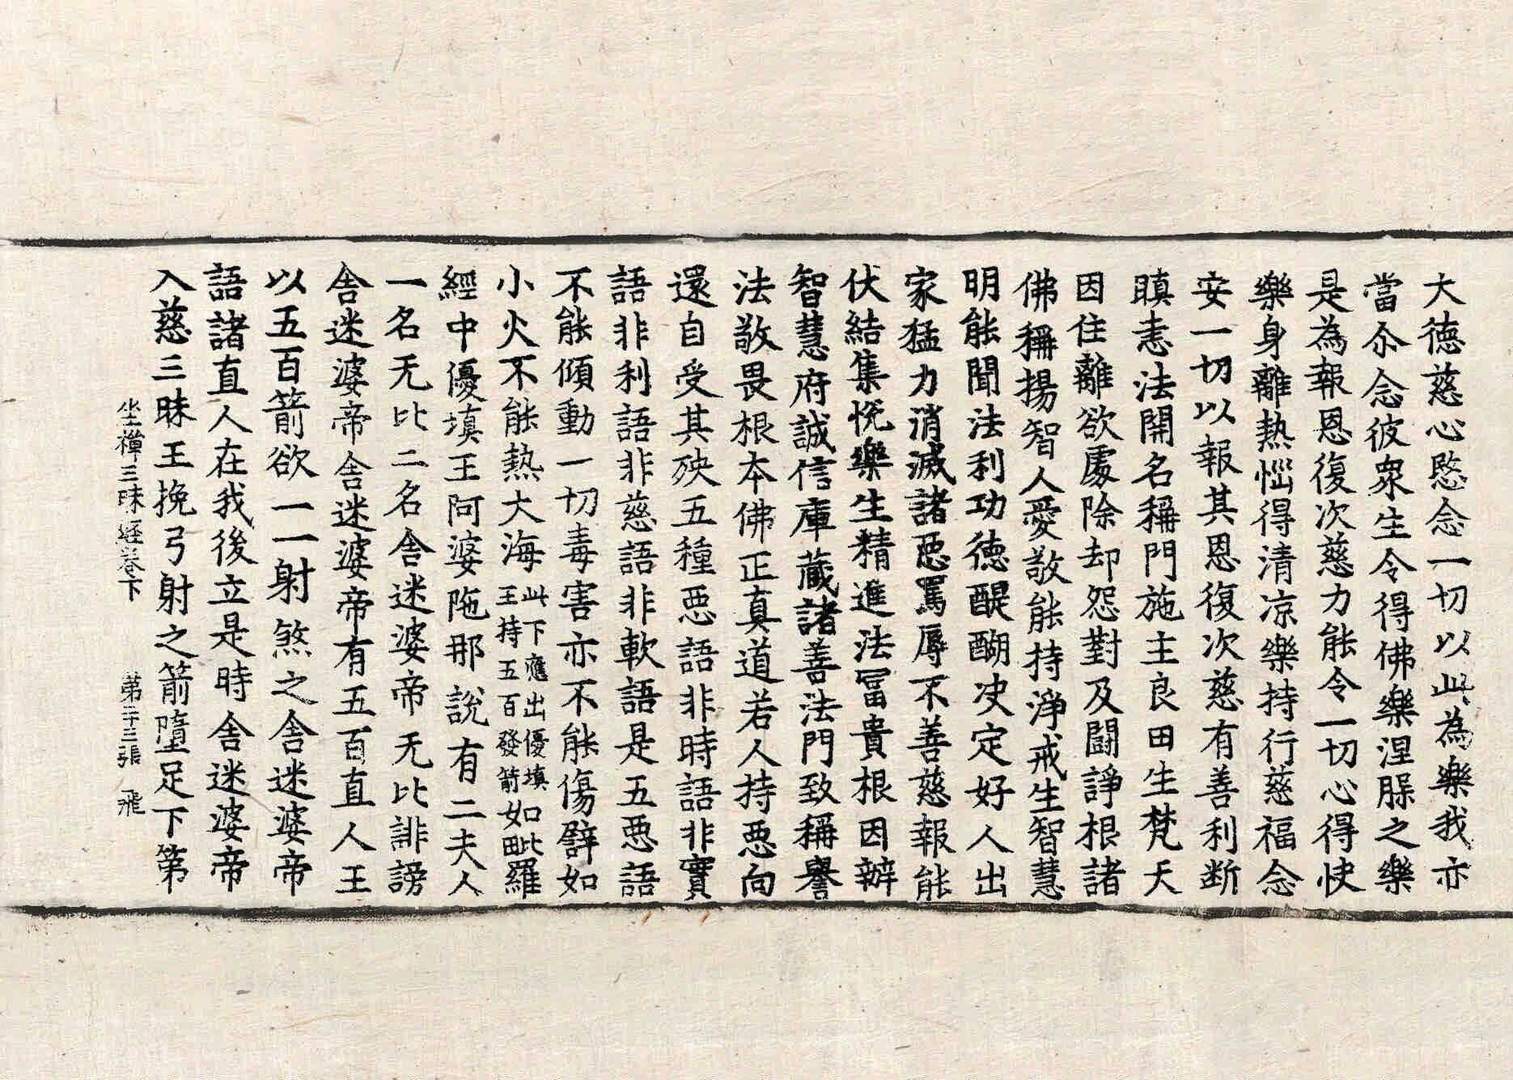 大德慈心愍念一切以此為樂我亦
當尒念彼衆生令得佛樂涅槃之樂
是為報恩復次慈力能令一切心得快
樂身離熱惱得清凉樂持行慈福念
安一切以報其恩復次慈有善利断
瞋恚法開名稱門施主良田生梵天
因住離欲處除却怨對及闘諍根諸
佛稱揚智人愛敬能持淨戒生智慧
明能聞法利功德醍醐决定好人出
家猛力消滅諸惡罵辱不善慈報能
伏結集悅樂生精進法冨貴根因辦
智慧府誠信庫藏諸善法門致稱譽
法敬畏根本佛正真道若人持惡向
還自受其殃五種惡語非時語非實
語非利語非慈語非軟語是五惡語
不能傾動一切毒害亦不能傷譬如
小火不能熱大海此下應出優填王持五百發箭如毗羅
經中優填王阿婆陁那說有二夫人
一名无比二名舍迷婆帝无比誹謗
舍迷婆帝舍迷婆帝有五百直人王
以五百箭欲一一射煞之舍迷婆帝
語諸直人在我後立是時舍迷婆帝
入慈三昧王挽弓射之箭墮足下第
坐禪三昧經卷下 第二十三張 飛